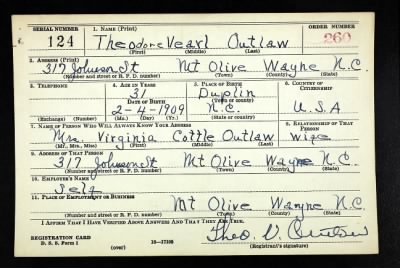 SERIAL NUMBER 1. NAME (Print) ORDER NUMBER
124 Theodore Vearl Outlaw 260
(First) (Middle) (Last)
2. ADDRESS (Print)
317 Johnson St Mt Olive Wayne N.C.
(Number and street or R. F. D. number) (Town) (County) (State)
3. TELEPHONE 4. AGE IN YEARS 5. PLACE OF BIRTH 6. COUNTRY OF CITIZENSHIP
31 Duplin
DATE OF BIRTH (Town or county)
2-4-1909 N.C. U.S.A
(Exchange) (Number) (Mo.) (Day) (Yr.) (State or country)
7. NAME OF PERSON WHO WILL ALWAYS KNOW YOUR ADDRESS 8. RELATIONSHIP OF THAT PERSON
Mrs. Virginia Cottle Outlaw wife
(Mr., Mrs., Miss) (First) (Middle) (Last)
9. ADDRESS OF THAT PERSON
317 Johnson St Mt Olive Wayne N.C.
(Number and street or R. F. D. number) (Town) (County) (State)
10. EMPLOYER'S NAME
Self
11. PLACE OF EMPLOYMENT OR BUSINESS
Mt Olive Wayne N.C.
(Number and street or R. F. D. number) (Town) (County) (State)
I AFFIRM THAT I HAVE VERIFIED ABOVE ANSWERS AND THAT THEY ARE TRUE.
Theo. V. Outlaw
REGISTRATION CARD
D. S. S. Form 1 (over) 16—17105 (Registrant's signature)